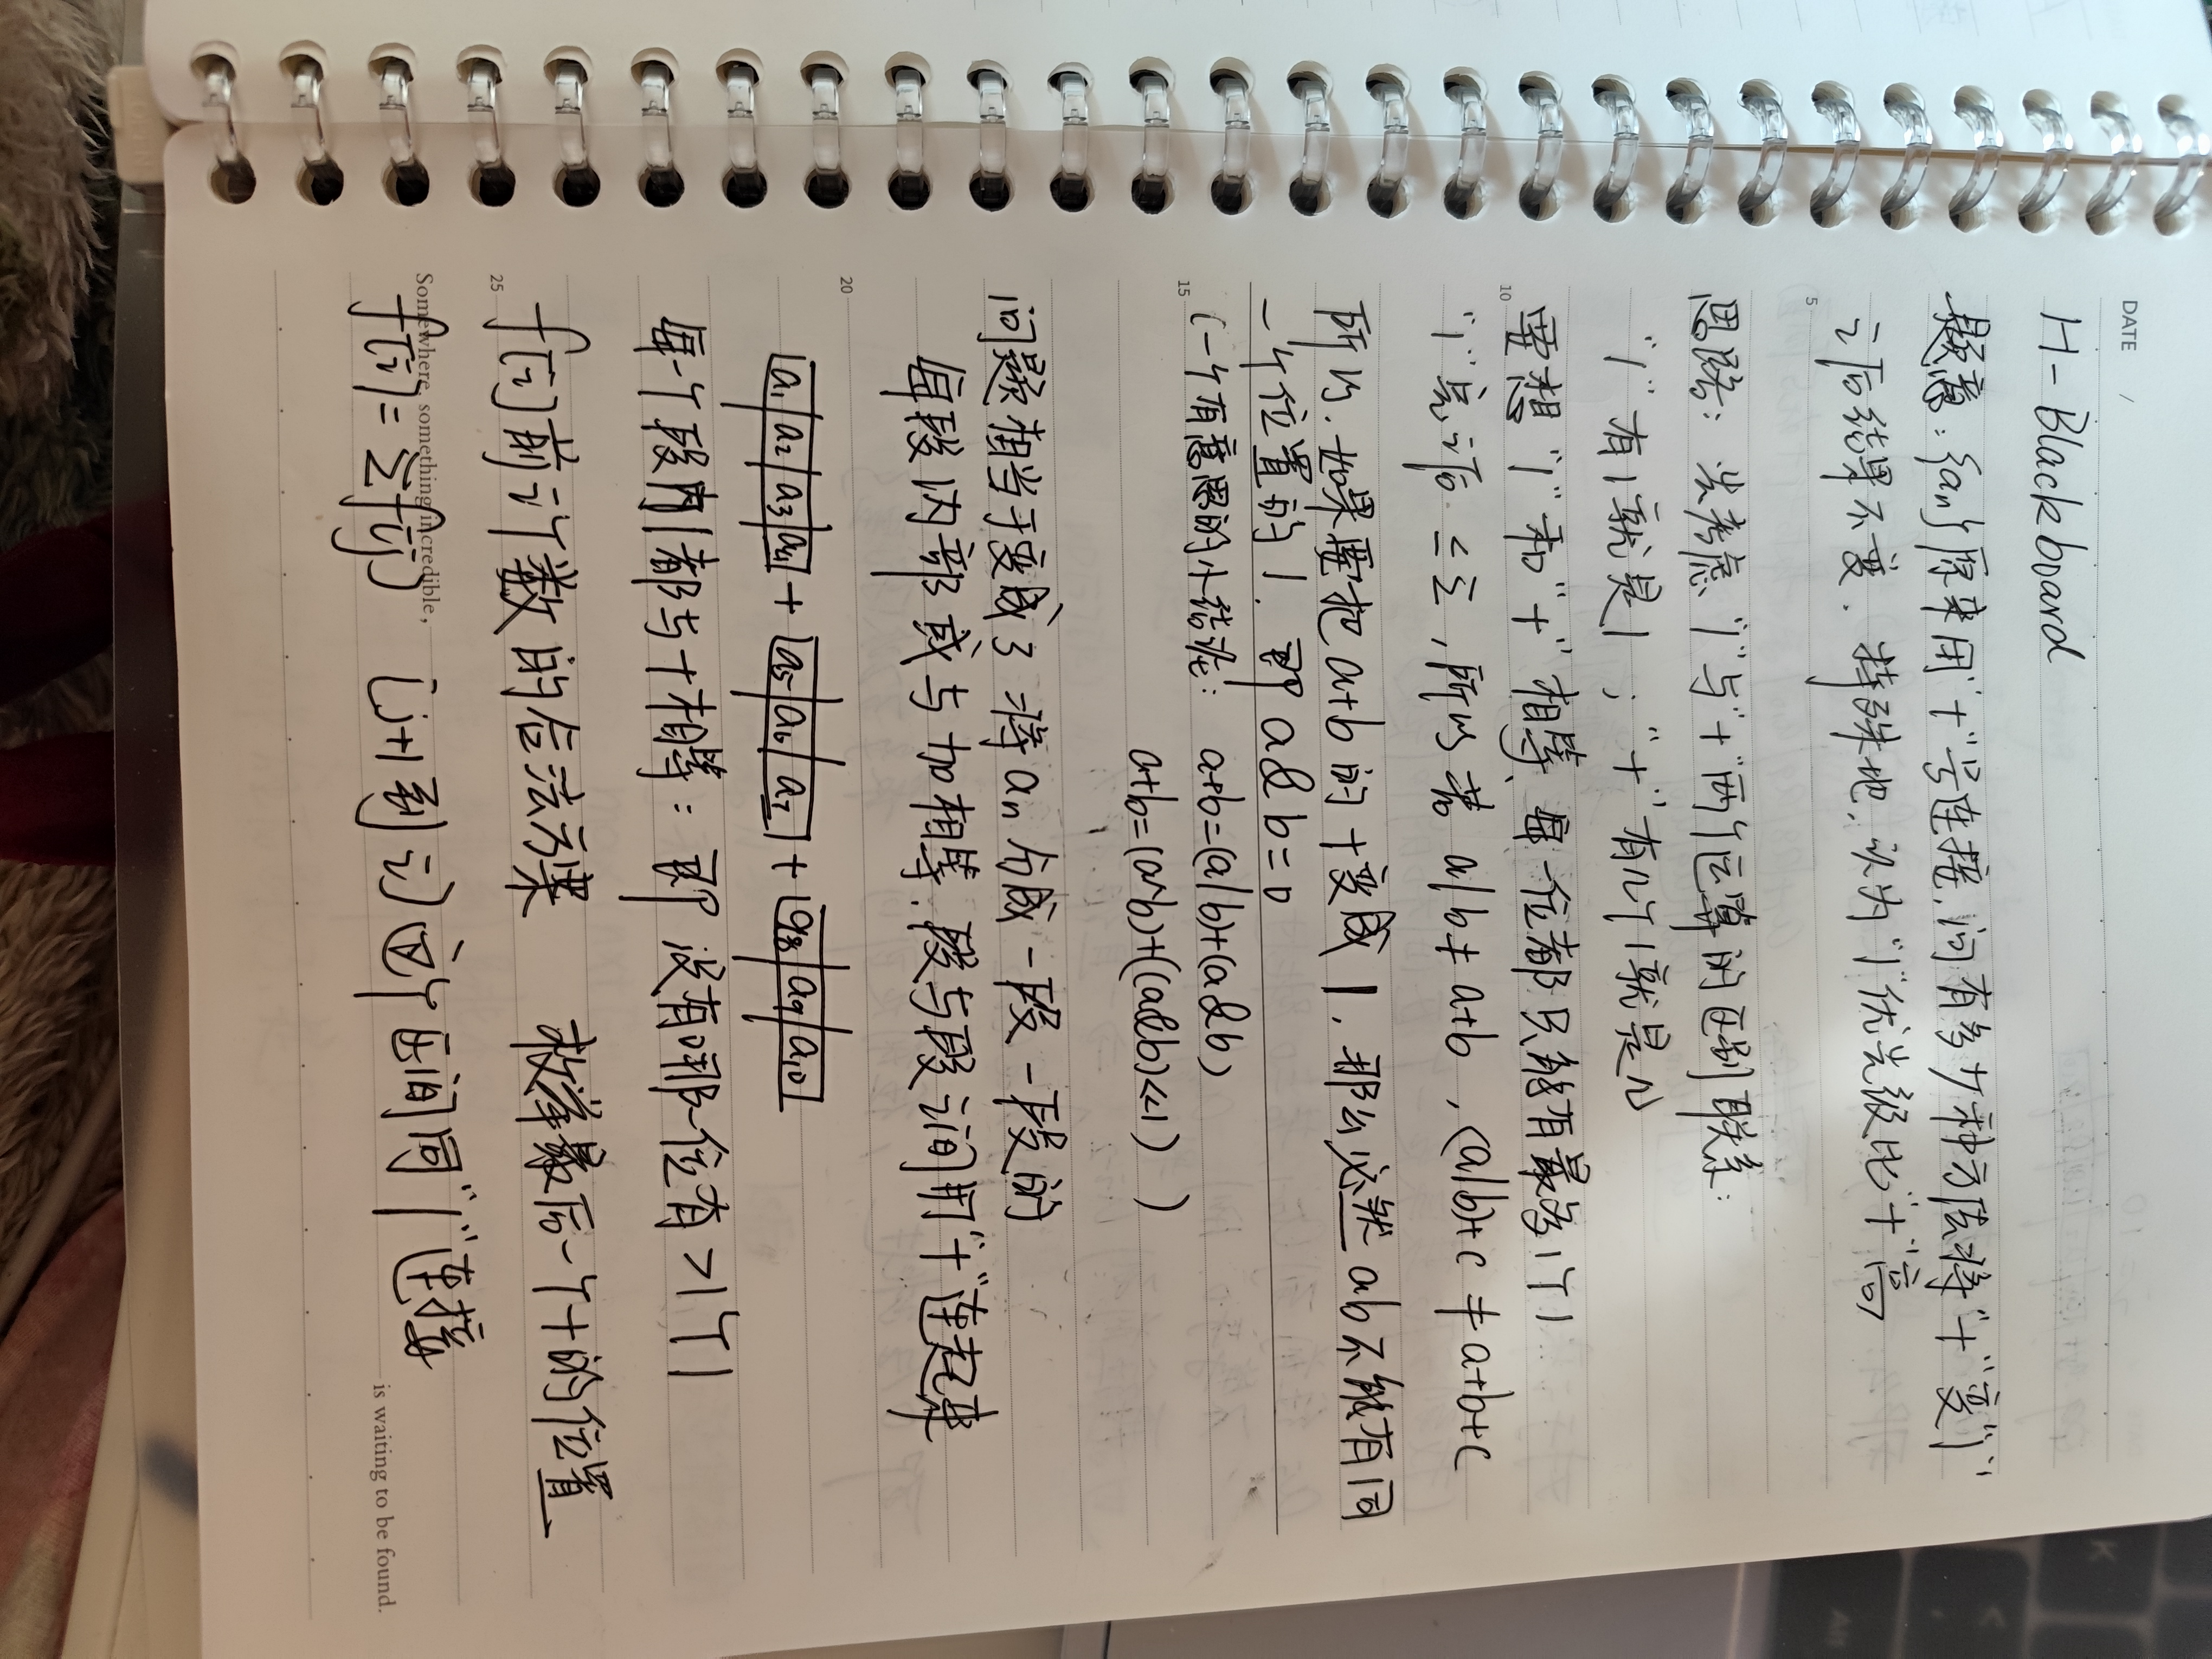 DATE
H - Blackboard
题意：{an} 原来用"+"号连接，问有多少种方法将"+"变"|"
之后结果不变．特殊地，认为"|"优先级比"+"高
5
思路：先考虑"|"与"+"两个运算的区别联系：
"|"有1就是1；"+"有几个1就是几
要想"|"和"+"相等，每一位都只能有最多1个1
10
"|"完之后 ≤ Σ，所以若 a|b ≠ a+b，(a|b)+c ≠ a+b+c
所以．如果要把 a+b 的 + 变成 |，那么必然 ab 不能有同
一个位置的1．即 a&b=0
(一个有意思的小结论： a+b=(a|b)+(a&b)
15
a+b=(a^b)+((a&b)<<1) )
问题相当于变成了将 an 分成一段一段的
每段内部或与加相等．段与段之间用"+"连起来
20
a1 a2 a3 a4 + a5 a6 a7 + a8 a9 a10
每个段内|都与+相等：即 没有哪个位有 >1个1
f(i) 前i个数的合法方案 枚举最后一个+的位置
25
Somewhere, something incredible,
f(i) = Σf(j) (j+1到i) 这个区间同"|"连接
is waiting to be found.